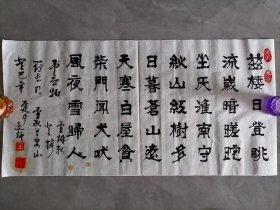 茲樓日登眺
流歲暗蹉跎
坐厭淮南守
秌山紅樹多
日暮蒼山遠
天寒白屋貧
柴門聞犬吠
風夜雪歸人
韋應物
癸巳年夏月